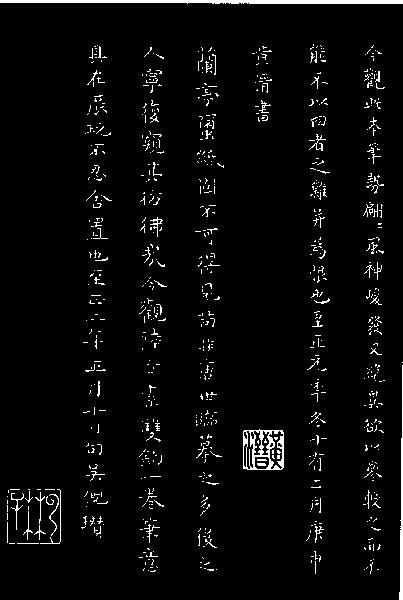 今觀此本筆勢翩翩風神峻發又欲以參較之而不
能不以四者之難并為恨也至正元年冬十有二月庚申
黄溍書
黄溍
蘭亭繭紙固不可得見尚非唐世臨摹之多後之
人寧復窺其彷彿哉今觀陸之書雙鈎一卷筆意
具在展玩不忍舍置也至正二年正月十日句吳倪瓚